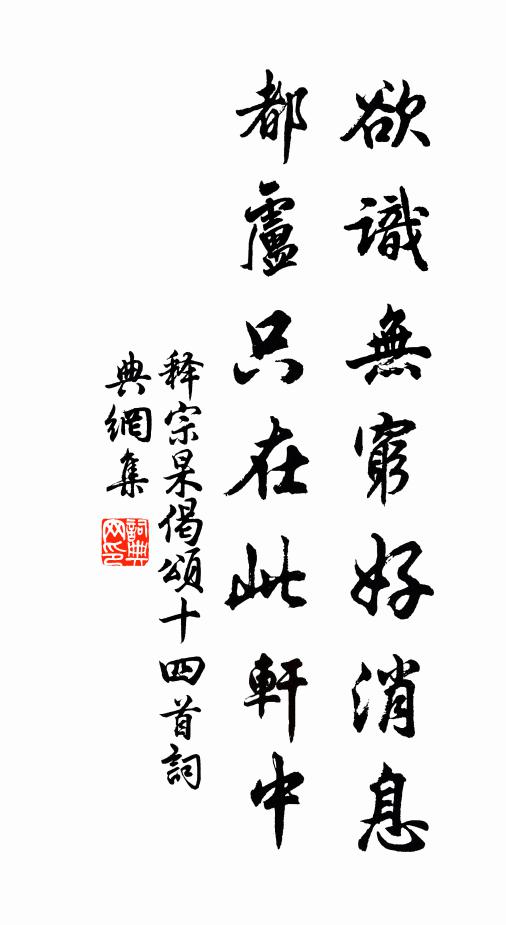 欲識無窮好消息
都盧只在此軒中
释宗杲偈頌十四首詞
典網集
詞典網印